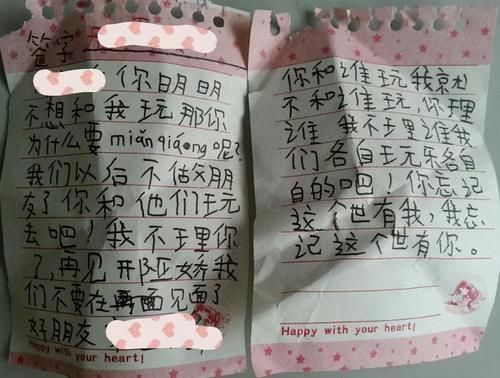 签字 王
你明明
不想和我玩那你
为什么要miǎnqiáng呢?
我们以后不做朋
友了你和他们玩
去吧!我不理你
了,再见 我
们不要在再面见面了
好朋友
Happy with your heart!
你和谁玩我就
不和谁玩,你理
谁 我不理谁我
们各自玩乐各自
自的吧!你忘记
这个世有我,我忘
记这个世有你。
Happy with your heart!